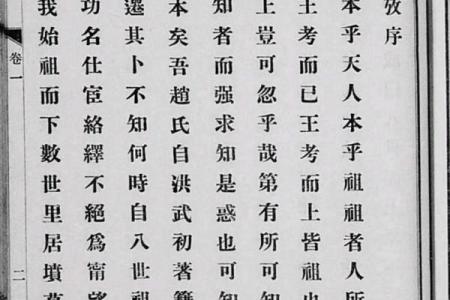 攷序
本乎天人本乎祖祖者人所
王考而已王考而上皆祖也
上豈可忽乎哉第有所可知
知者而强求知是惑也可知
本矣吾趙氏自洪武初著籍
遷其卜不知何時自八世祖
功名仕宦絡繹不絕爲甯望
我始祖而下數世里居墳墓
卷一
二